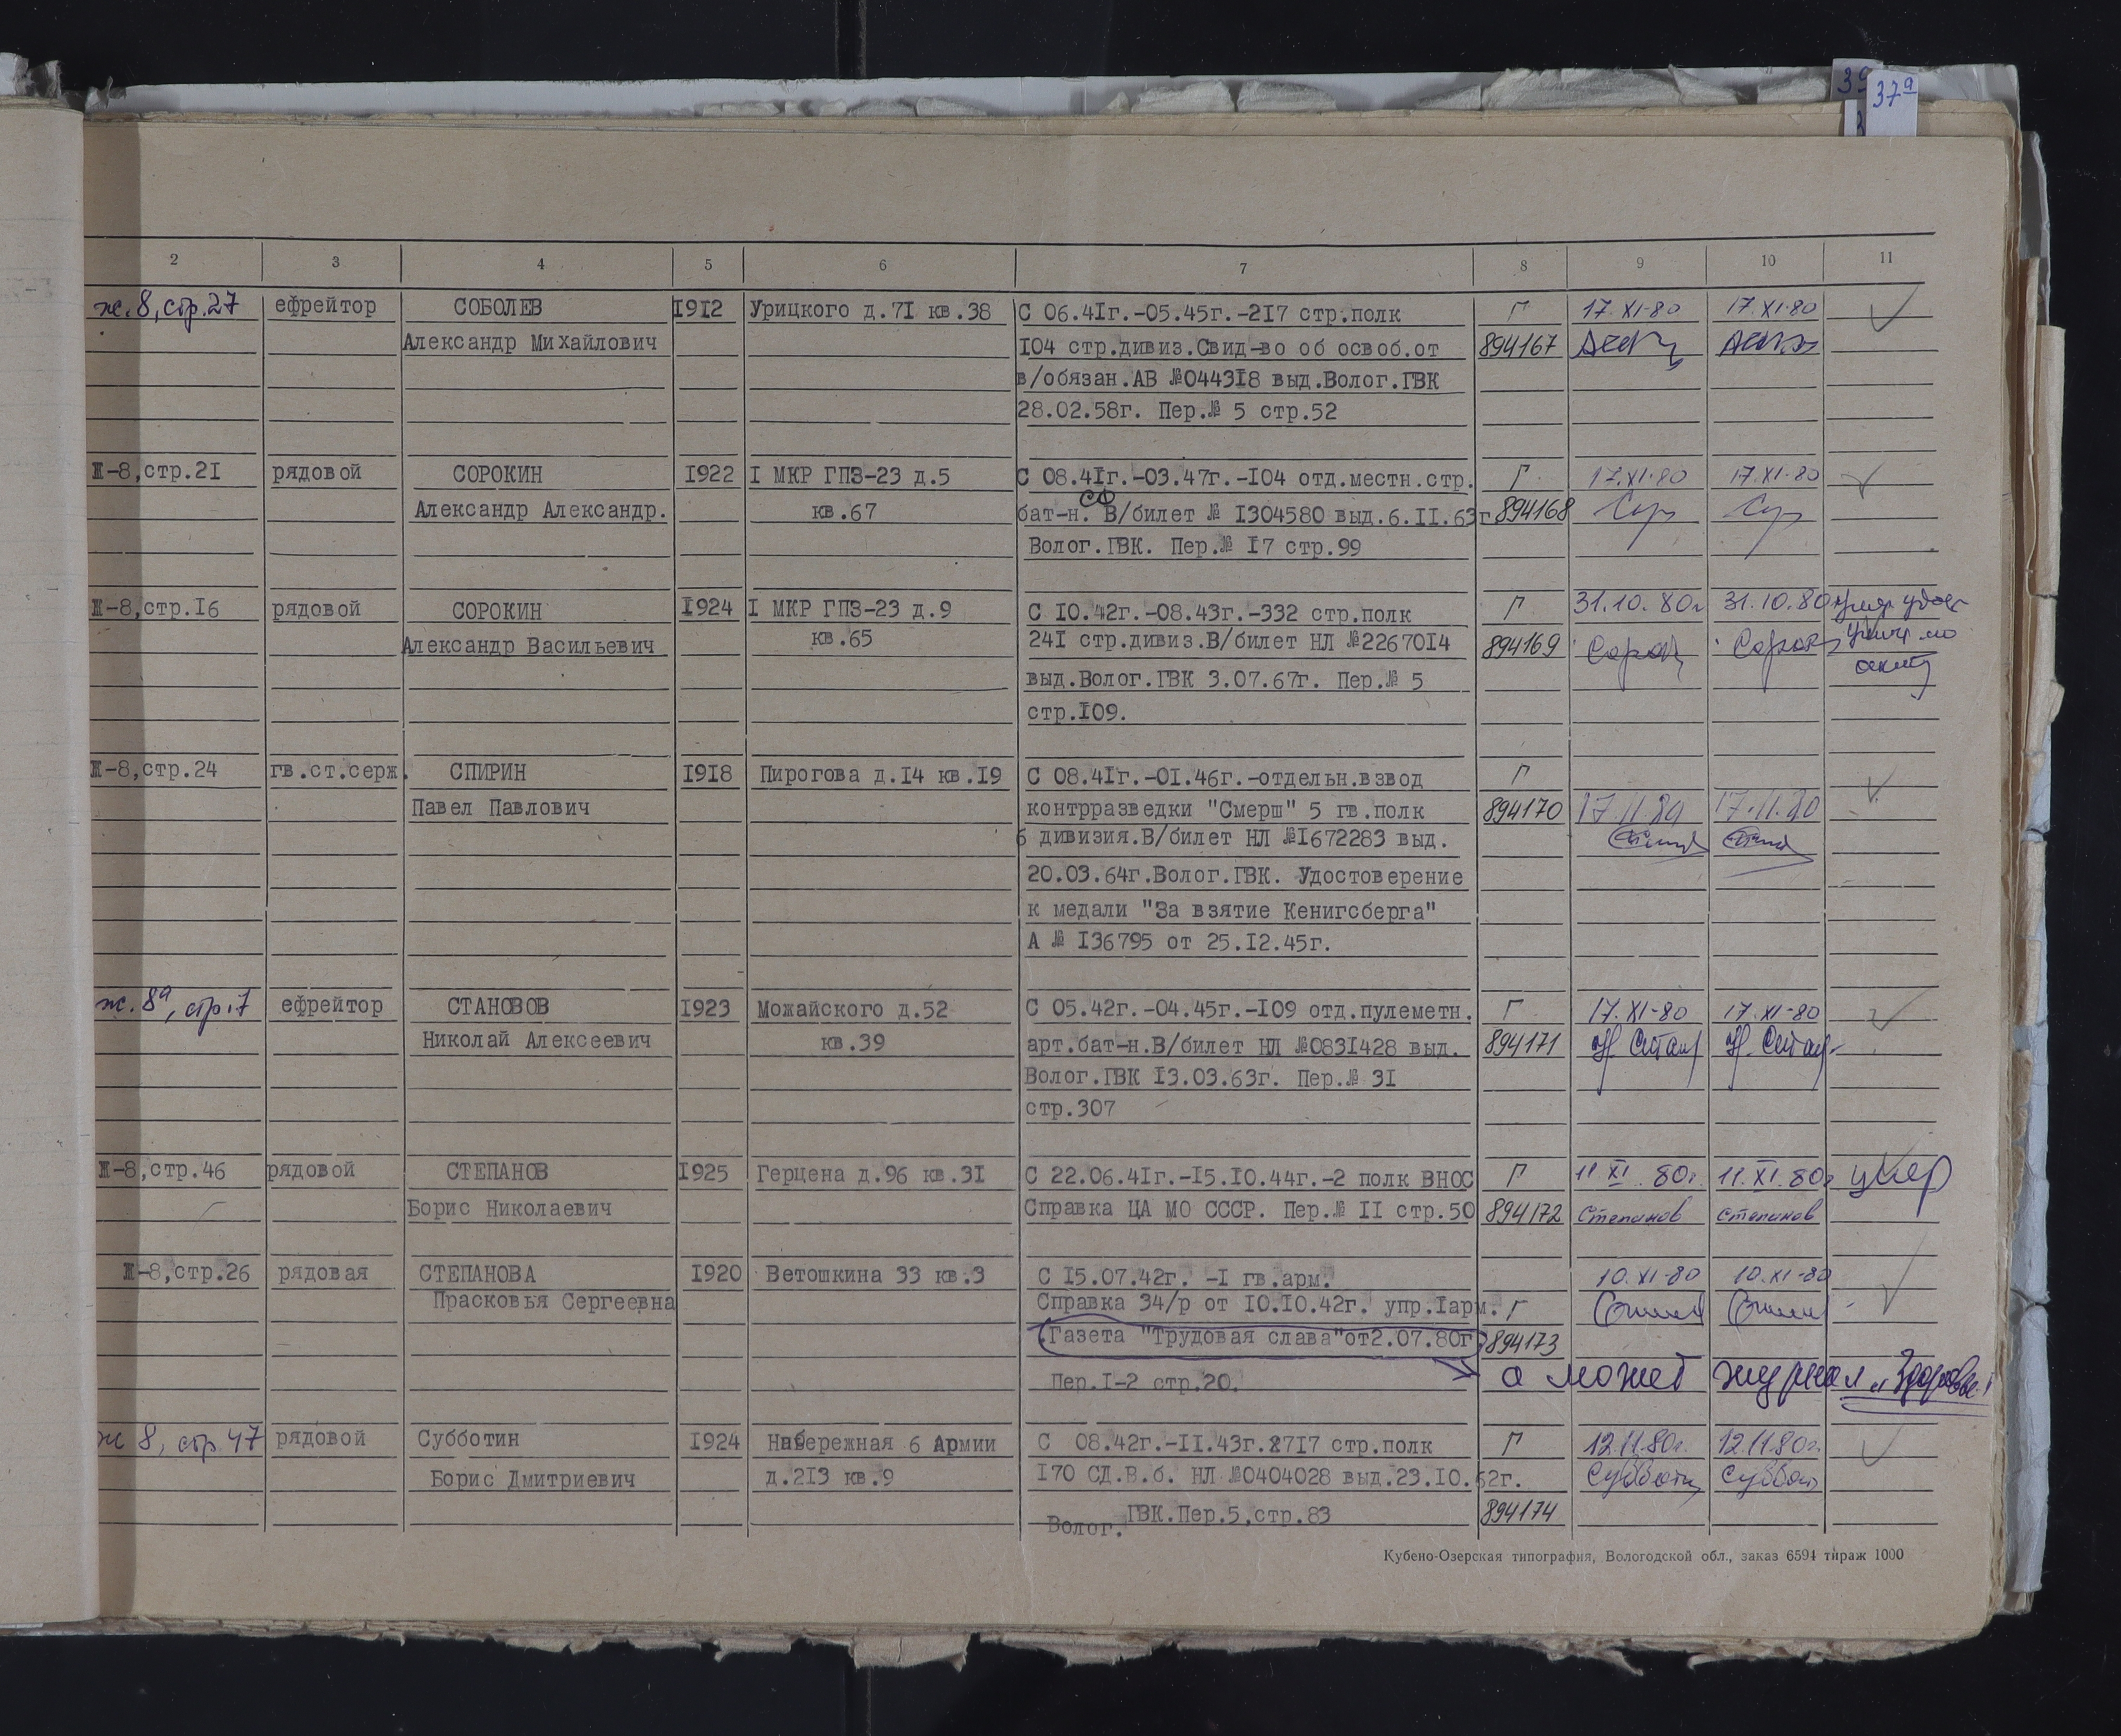 37а
2 3 4 5 6 7 8 9 10 11
ж.8, стр.27 ефрейтор СОБОЛЕВ 1912 Урицкого д.71 кв.38 С 06.41г.-05.45г.-217 стр.полк Г 17.XI-80 17.XI-80
Александр Михайлович 104 стр.дивиз.Свид-во об освоб.от 894167
в/обязан.АВ №044318 выд.Волог.ГВК
28.02.58г. Пер.№ 5 стр.52
Ж-8,стр.21 рядовой СОРОКИН 1922 I МКР ГПЗ-23 д.5 С 08.41г.-03.47г.-104 отд.местн.стр. Г 17.XI-80 17.XI-80
СФ
Александр Александр. кв.67 бат-н. В/билет № 1304580 выд.6.11.63г. 894168
Волог.ГВК. Пер.№ 17 стр.99
Ж-8,стр.16 рядовой СОРОКИН 1924 I МКР ГПЗ-23 д.9 С 10.42г.-08.43г.-332 стр.полк Г 31.10.80г 31.10.80г
Александр Васильевич кв.65 241 стр.дивиз.В/билет НЛ №2267014 894169
выд.Волог.ГВК 3.07.67г. Пер.№ 5
стр.109.
Ж-8,стр.24 гв.ст.серж. СПИРИН 1918 Пирогова д.14 кв.19 С 08.41г.-01.46г.-отдельн.взвод Г
Павел Павлович контрразведки "Смерш" 5 гв.полк 894170 17.11.80 17.11.80
6 дивизия.В/билет НЛ №1672283 выд.
20.03.64г.Волог.ГВК. Удостоверение
к медали "За взятие Кенигсберга"
А № 136795 от 25.12.45г.
ж.8а, стр.7 ефрейтор СТАНОВОВ 1923 Можайского д.52 С 05.42г.-04.45г.-109 отд.пулеметн. Г 17.XI-80 17.XI-80
Николай Алексеевич кв.39 арт.бат-н.В/билет НЛ №0831428 выд. 894171
Волог.ГВК 13.03.63г. Пер.№ 31
стр.307
Ж-8,стр.46 рядовой СТЕПАНОВ 1925 Герцена д.96 кв.31 С 22.06.41г.-15.10.44г.-2 полк ВНОС Г 11 XI 80г. 11.XI.80г умер
Борис Николаевич Справка ЦА МО СССР. Пер.№ II стр.50 894172 Степанов Степанов
Ж-8,стр.26 рядовая СТЕПАНОВА 1920 Ветошкина 33 кв.3 С 15.07.42г. -I гв.арм. 10.XI-80 10.XI-80
Прасковья Сергеевна Справка 34/р от 10.10.42г. упр.1арм. Г
Газета "Трудовая слава"от2.07.80г 894173
Пер.I-2 стр.20. а может журнал „Здоровье"
ж 8, стр.47 рядовой Субботин 1924 Набережная 6 Армии С 08.42г.-11.43г.2717 стр.полк Г 12.11.80г. 12.11.80г.
Борис Дмитриевич д.213 кв.9 170 СД.В.б. НЛ №0404028 выд.23.10.62г.
Волог. ГВК.Пер.5,стр.83 894174
Кубено-Озерская типография, Вологодской обл., заказ 6594 тираж 1000